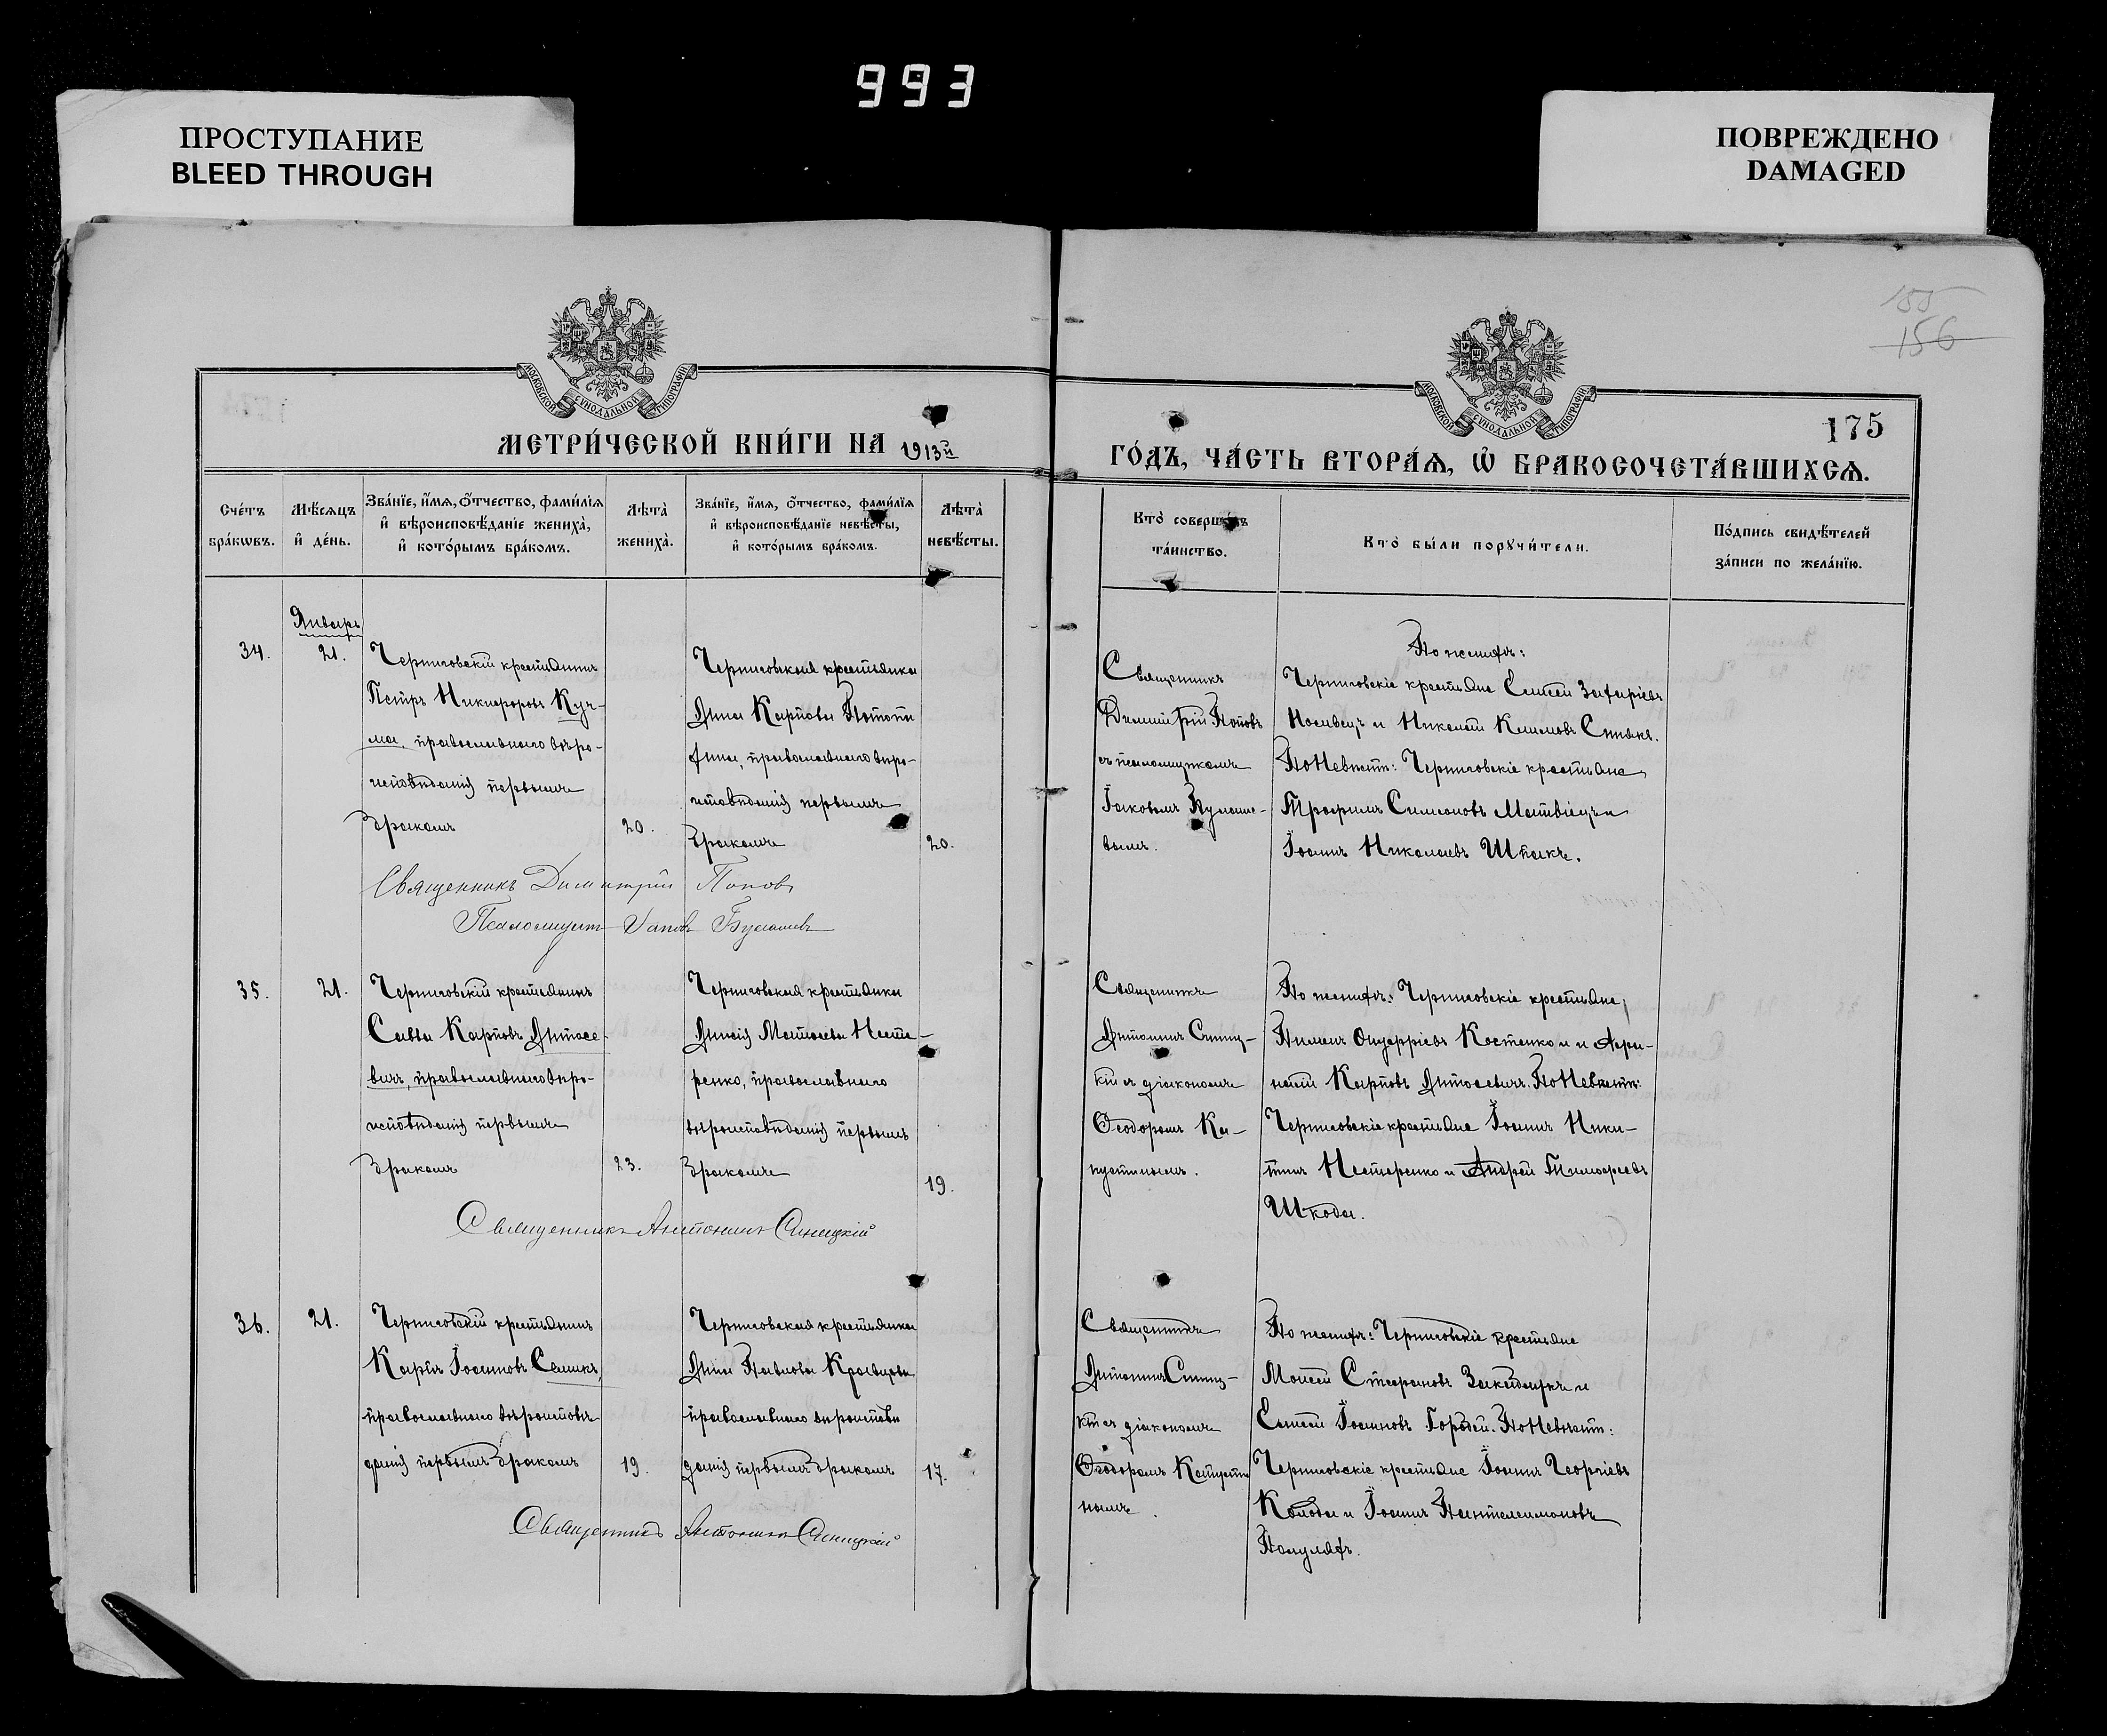 993
ПРОСТУПАНИЕ
BLEED THROUGH
ПОВРЕЖДЕНО
DAMAGED
155
156
175
МОСКОВСКОЙ СѴНОДАЛЬНОЙ ТИПОГРАФІИ
МЕТРИ́ЧЕСКОЙ КНИ́ГИ НА 1913й
МОСКОВСКОЙ СѴНОДАЛЬНОЙ ТИПОГРАФІИ
ГО́ДЪ, ЧА́СТЬ ВТОРА́Ѧ, Ѡ҆ БРАКОСОЧЕТА́ВШИХСѦ.
Сче́тъ бра́кѡвъ.
Мѣ́сѧцъ и҆ де́нь.
Зва́нїе, и҆́мѧ, ѻ҆́тчество, фами́лїѧ и҆ вѣроисповѣ́данїе жениха̀, и҆ кото́рымъ бра́комъ.
Лѣта̀ жениха̀.
Зва́нїе, и҆́мѧ, ѻ҆́тчество, фами́лїѧ и҆ вѣроисповѣ́данїе невѣ́сты, и҆ кото́рымъ бра́комъ.
Лѣта̀ невѣ́сты.
Кто̀ соверша́лъ та́инство.
Кто̀ бы́ли порꙋчи́тели.
По́дпись свидѣ́телей за́писи по жела́нїю.
Январь
34.
21.
Черниговскій крестьянинъ
Петръ Никифоровъ Куч-
ма, православнаго вѣро-
исповѣданія первымъ
бракомъ
20.
Черниговская крестьянка
Анна Карпова
православнаго вѣро-
исповѣданія первымъ
бракомъ
20.
Священникъ
Димитрій Поповъ
съ псаломщикомъ
Іаковомъ
вымъ.
По женихѣ:
Черниговскіе крестьяне Елисей Захаріевъ
Носивецъ и Николай Климовъ Спивакъ.
По невѣстѣ: Черниговскіе крестьяне
Трофимъ Симеоновъ Матвіецъ и
Іоаннъ Николаевъ Шпакъ.
Священникъ Димитрій Поповъ
Псаломщикъ
35.
21.
Черниговскій крестьянинъ
Савва Карповъ Антосе-
вичъ, православнаго вѣро-
исповѣданія первымъ
бракомъ
23.
Черниговская крестьянка
Матѳеева Несте-
ренко, православнаго
вѣроисповѣданія первымъ
бракомъ
19.
Священникъ
Антонинъ Синиц-
кій съ діакономъ
Ѳеодоромъ Ка-
пустинымъ.
По женихѣ: Черниговскіе крестьяне,
Пименъ Онуфріевъ Костенко и Афа-
насій Карповъ Антосевичъ. По невѣстѣ:
Черниговскіе крестьяне Іоаннъ Ники-
тинъ Нестеренко и Андрей Тимофеевъ
Шкода.
Священникъ Антонинъ Синицкій
36.
21.
Черниговскій крестьянинъ
Карпъ Іоанновъ Семикъ,
православнаго вѣроисповѣ-
данія первымъ бракомъ
19.
Черниговская крестьянка
Анна Павлова Кравцова
православнаго вѣроисповѣ
данія первымъ бракомъ
17.
Священникъ
Антонинъ Синиц-
кій съ діакономъ
Ѳеодоромъ Капусти
нымъ.
По женихѣ: Черниговскіе крестьяне
Моисей Стефановъ и
Елисей Іоанновъ Гордей. По невѣстѣ:
Черниговскіе крестьяне Іоаннъ Георгіевъ
Колода и Іоаннъ Пантелеимоновъ
Полуляхъ.
Священникъ Антонинъ Синицкій